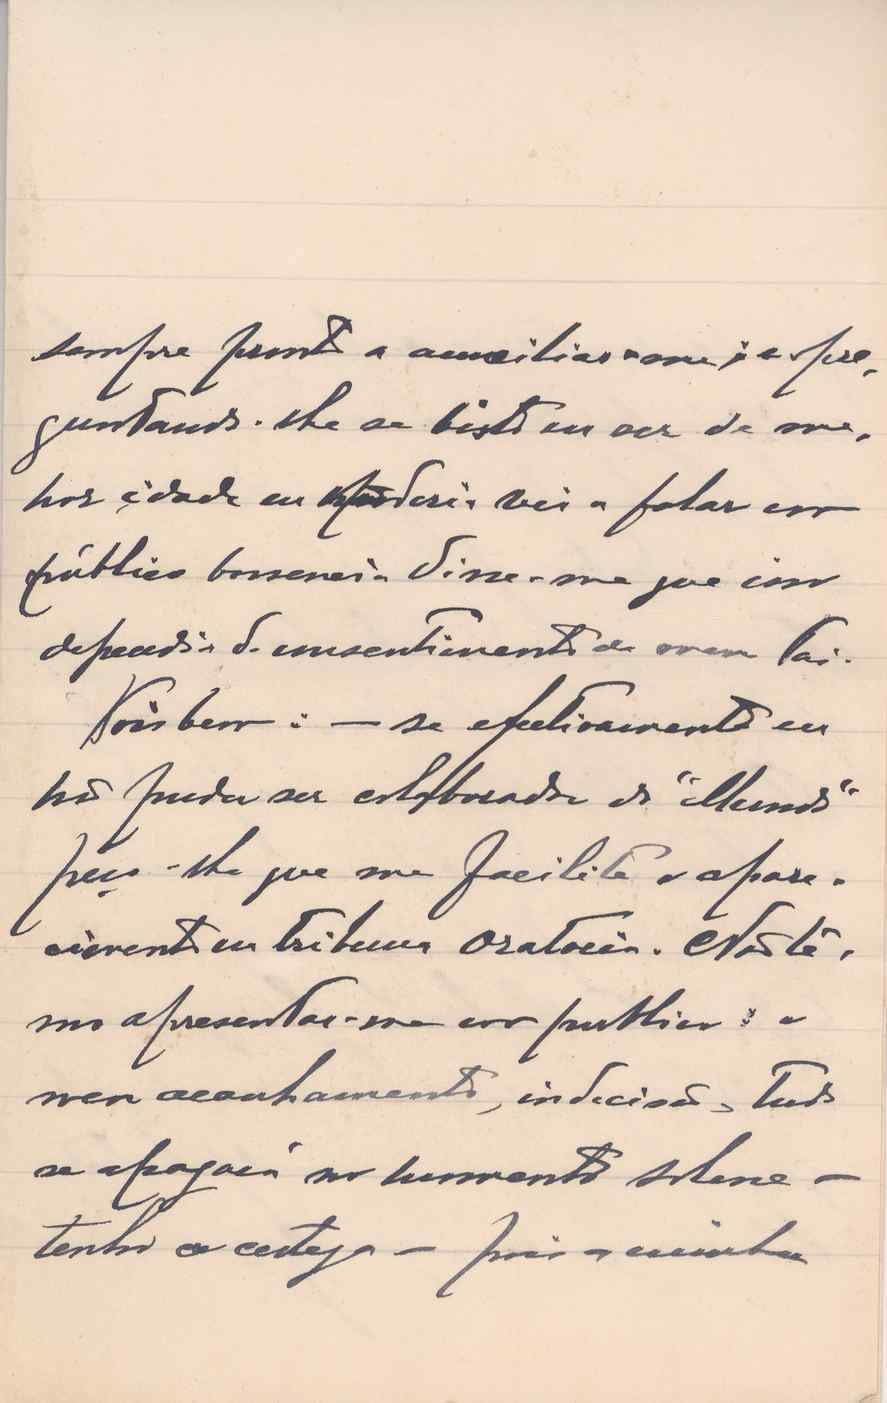 sempre pronto a auxiliar-me; e pre-
guntando-lhe se visto eu ser de me-
nor idade eu poderia vir a falar em
público
disse-me que isso
dependia do consentimento de meu Pai.
Pois bem: — se efectivamente eu
não puder ser colaborador do "Mundo"
peço-lhe que me facilite o apare-
cimento em tribuna oratoria. Não te-
mo apresentar-me em publico: o
meu acanhamento, indecisão, tudo
se apagará no momento solene —
tenho a certeza — pois a minha